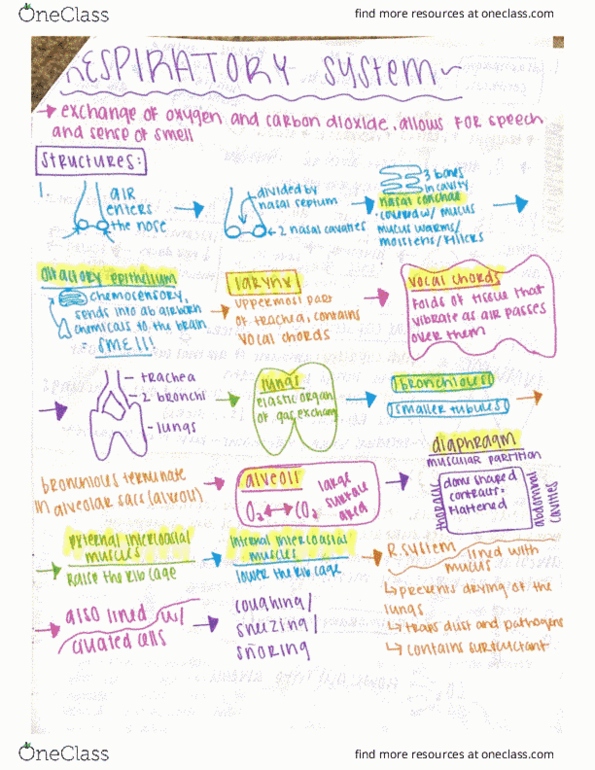 OneClass
find more resources at oneclass.com
RESPIRATORY system
→ exchange of oxygen and carbon dioxide. allows for speech
and sense of smell
structures:
1.
air
enters
the nose
divided by
nasal septum
2 nasal cavaties
3 bones
in cavity
nasal conchae
covered w/ mucus
mucus warms/
moistens/filters
olfactory epithelium
chemosensory,
sends info ab airborn
chemicals to the brain
= SMELL!
larynx
uppermost part
of trachea, contains
vocal chords
vocal chords
folds of tissue that
vibrate as air passes
over them
- trachea
- 2° bronchi
- lungs
lungs
elastic organ
of gas exchang
bronchioles
smaller tubules
bronchioles terminate
in alveolar sacs (alveoli)
alveoli
O₂ ↔ CO₂
large
surface
area
diaphragm
muscular partition
thoracic
dome shaped
contract =
flattened
abdominal
cavities
external intercoastal
muscles
raise the rib cage
internal intercoastal
muscles
lower the rib cage
R system lined with
mucus
↳ prevents drying of the
lungs
↳ traps dust and pathogens
↳ contains surfuctant
also lined w/
ciliated cells
coughing/
sneizing/
snoring
OneClass
find more resources at oneclass.com